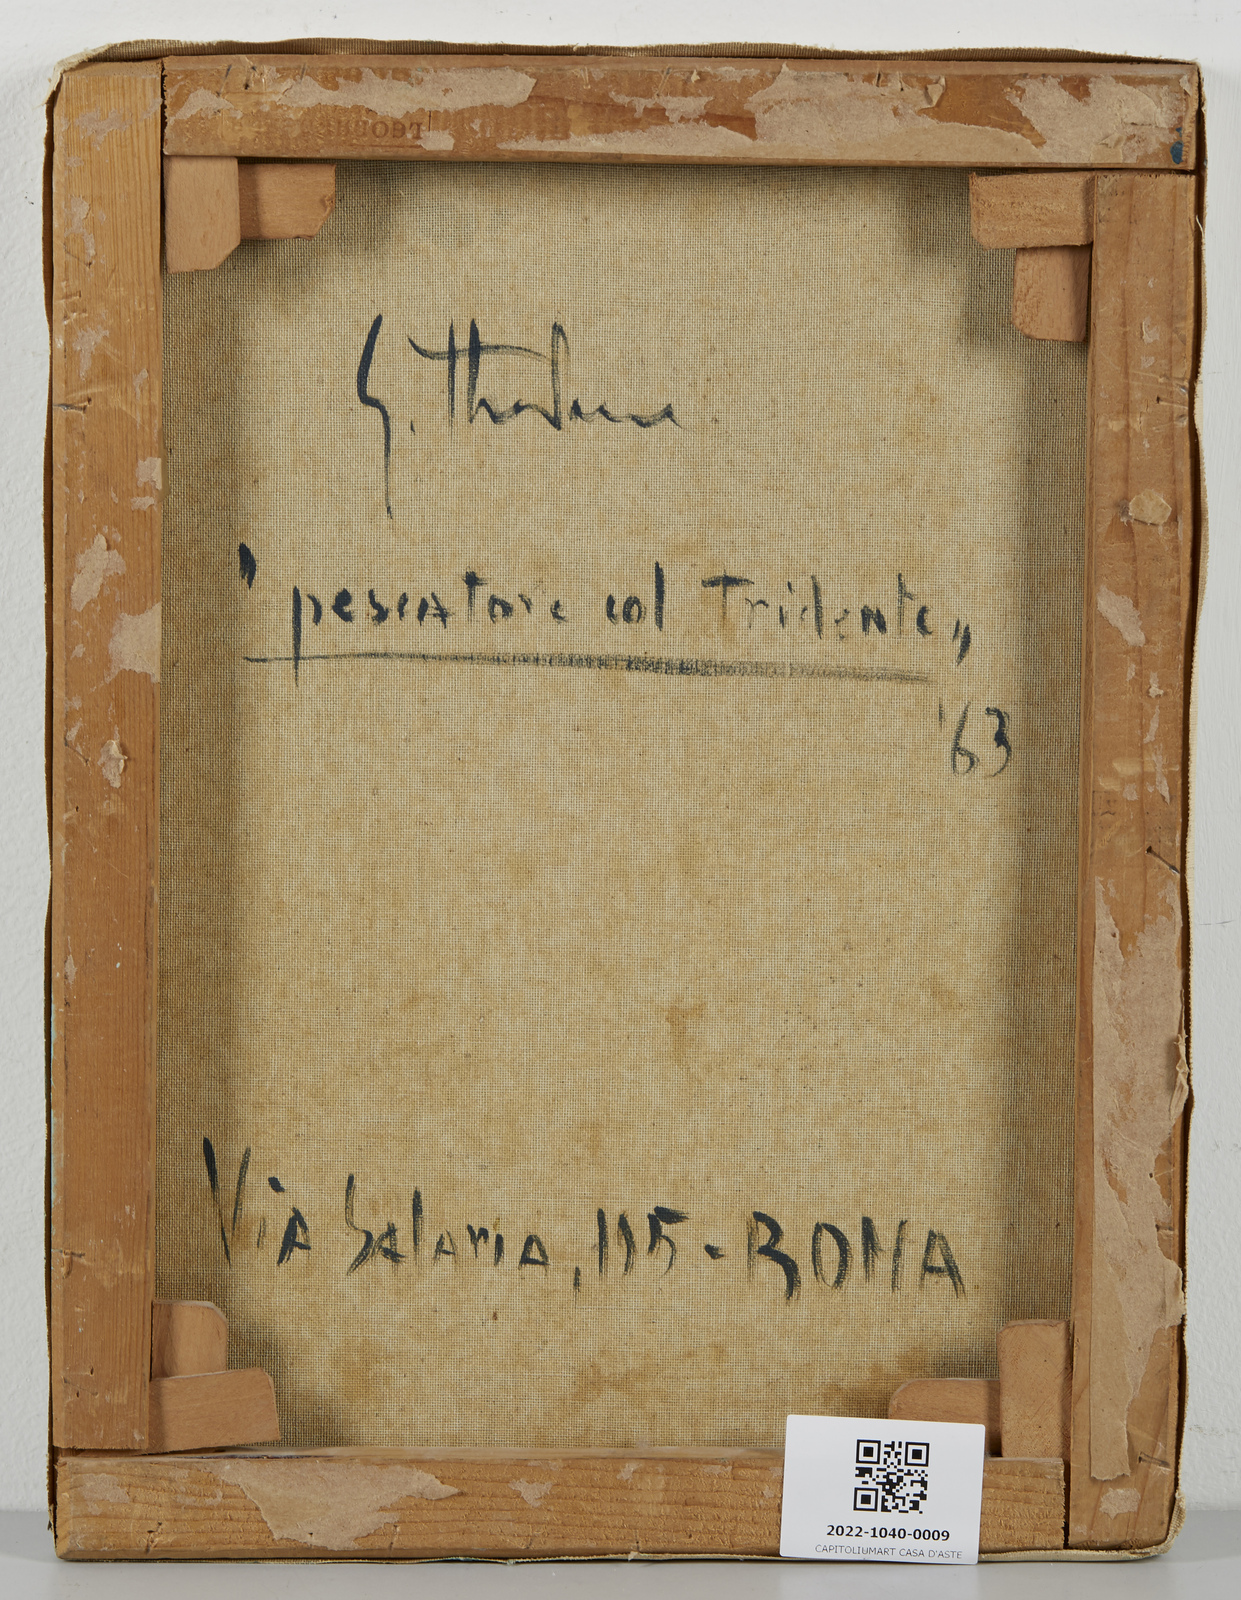 G.
"pescatore col Tridente„
'63
Via Salaria, 115 - ROMA
2022-1040-0009
CAPITOLIUMART CASA D'ASTE